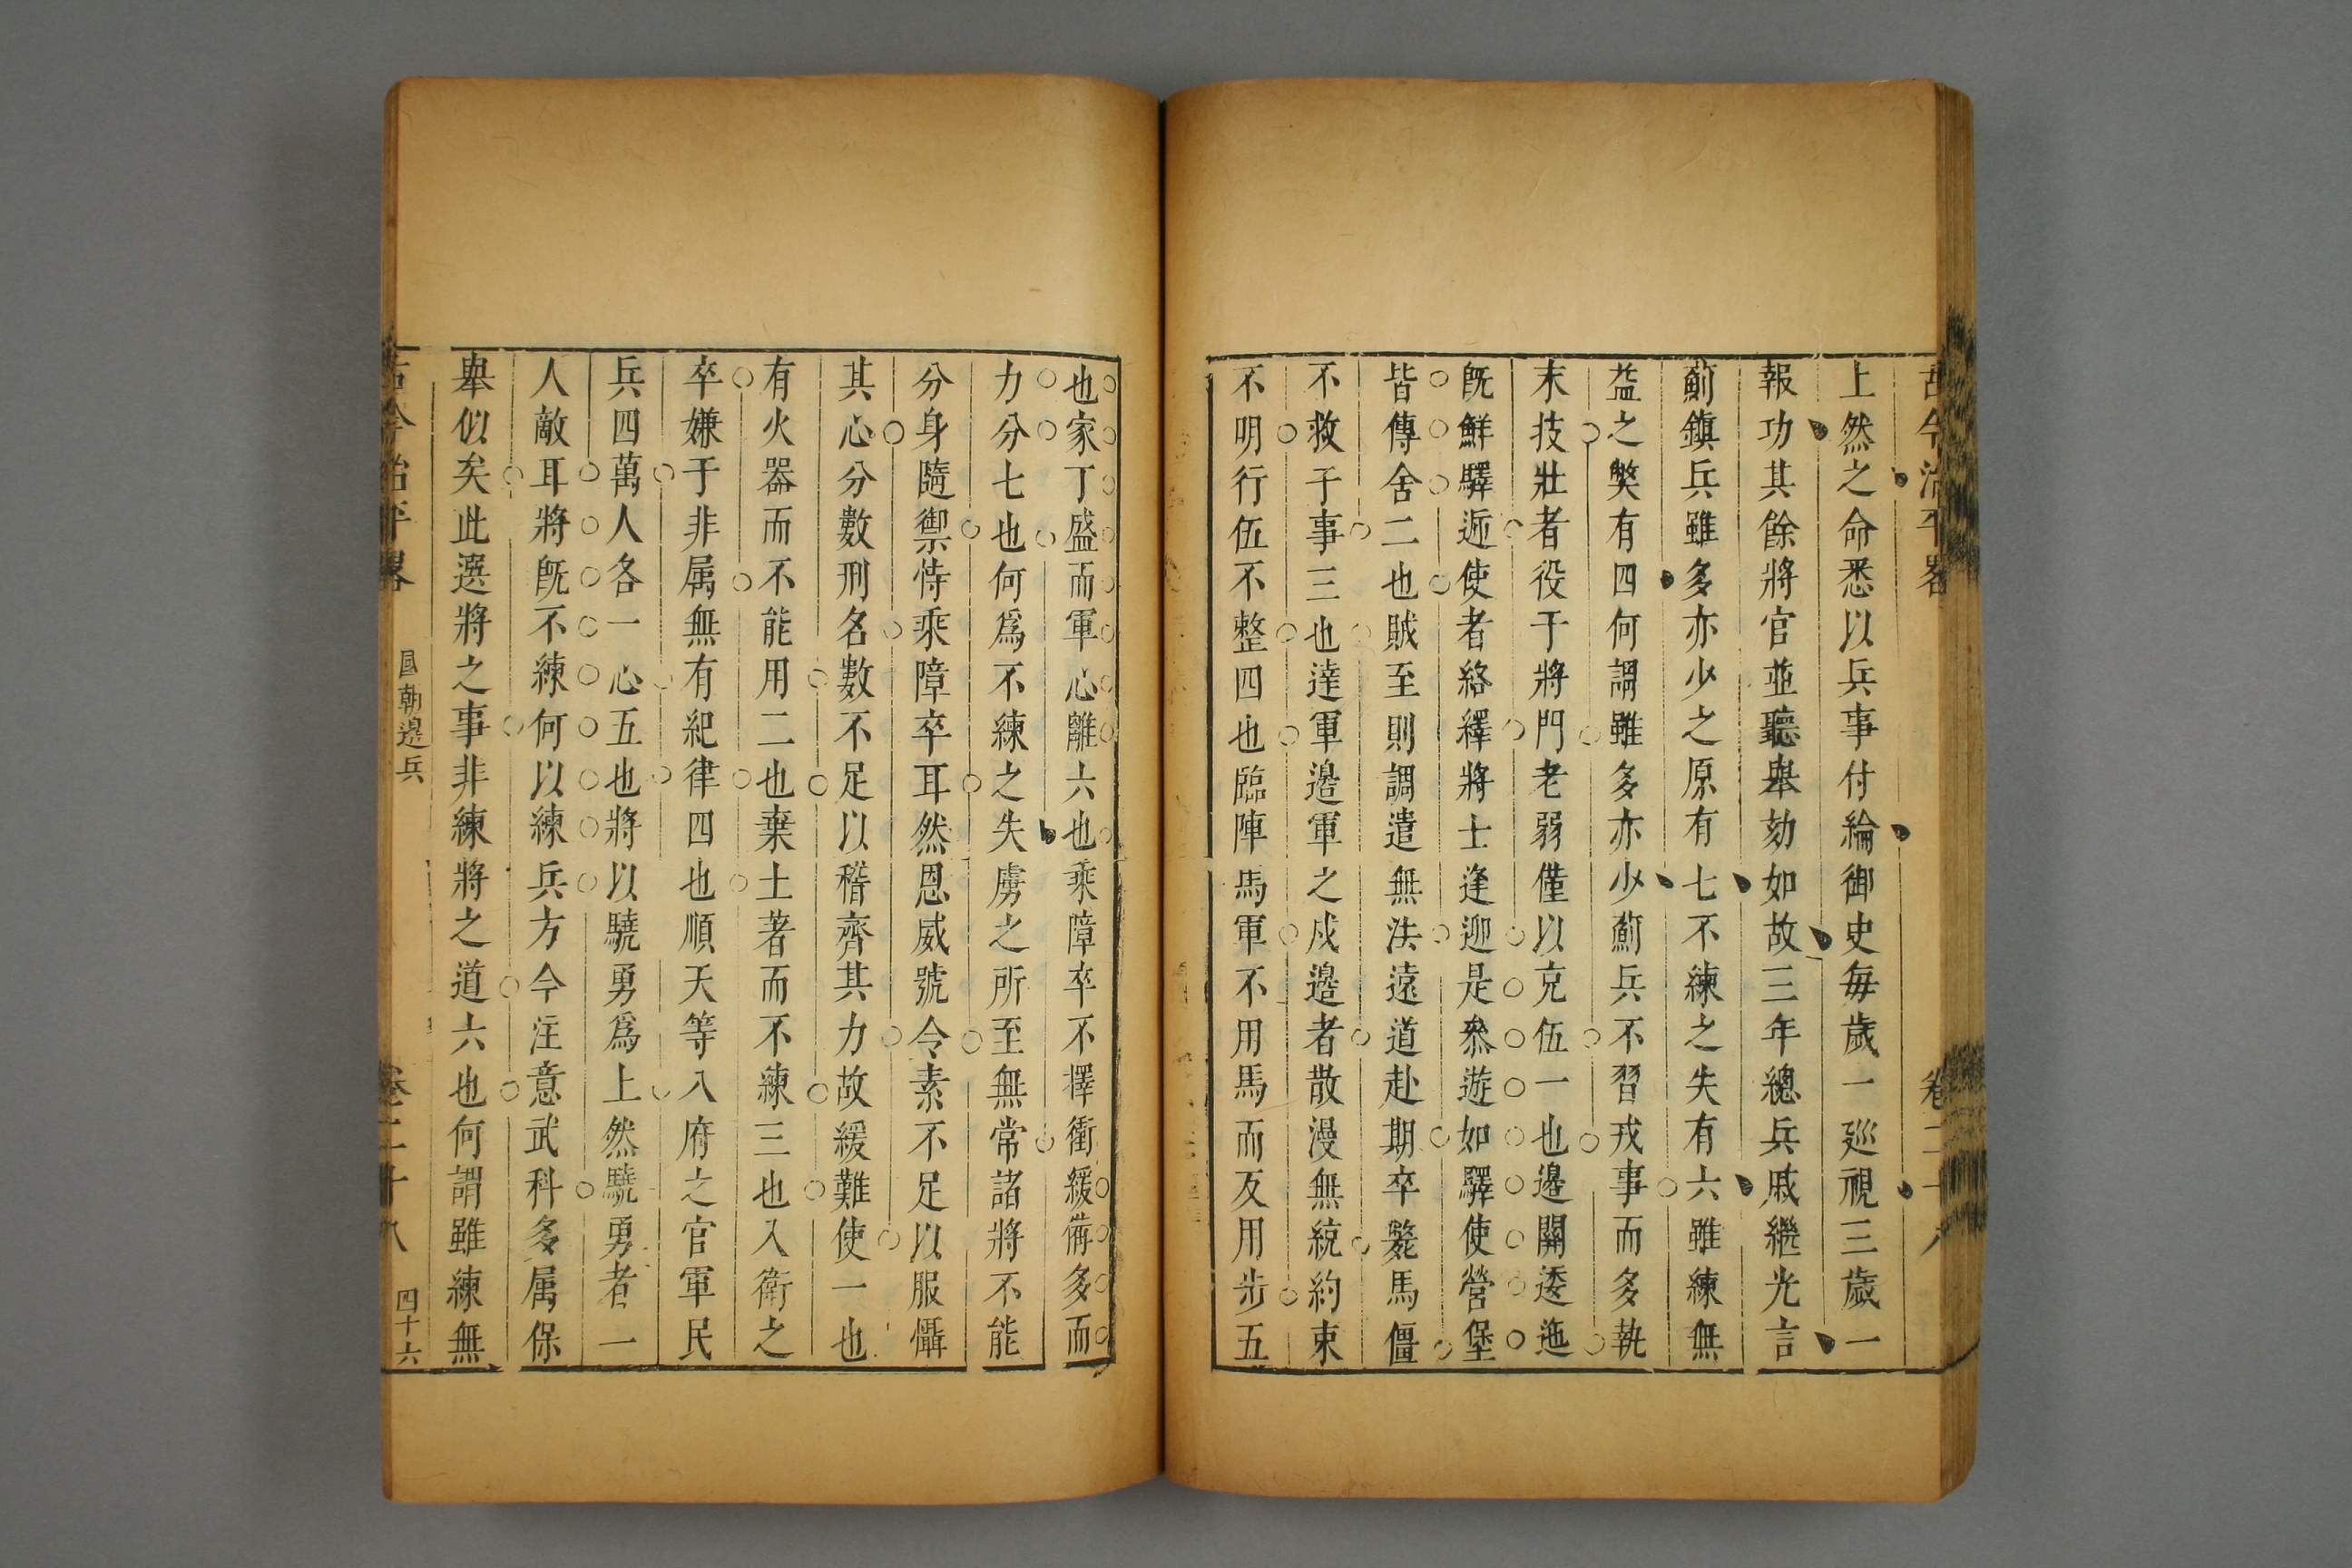 古今治平畧 卷二十八
上然之命悉以兵事付綸御史每歲一廵視三歲一
報功其餘將官並聽舉劾如故三年總兵戚繼光言
薊鎮兵雖多亦少之原有七不練之失有六雖練無
益之獘有四何謂雖多亦少薊兵不習戎事而多執
末技壯者役于將門老弱僅以克伍一也邊關逶迤
旣鮮驛逓使者絡繹將士逢迎是叅遊如驛使營堡
皆傳舍二也賊至則調遣無法遠道赴期卒斃馬僵
不救于事三也達軍邉軍之戍邉者散漫無統約束
不明行伍不整四也臨陣馬軍不用馬而反用步五
也家丁盛而軍心離六也乘障卒不擇衝緩備多而
力分七也何爲不練之失虜之所至無常諸將不能
分身隨禦恃乘障卒耳然恩威號令素不足以服懾
其心分數刑名數不足以稽齊其力故緩難使一也
有火器而不能用二也棄土著而不練三也入衛之
卒嫌于非属無有紀律四也順天等八府之官軍民
兵四萬人各一心五也將以驍勇爲上然驍勇者一
人敵耳將旣不練何以練兵方今注意武科多属保
舉似矣此選將之事非練將之道六也何謂雖練無
古今治平畧 國朝邉兵 卷二十八 四十六